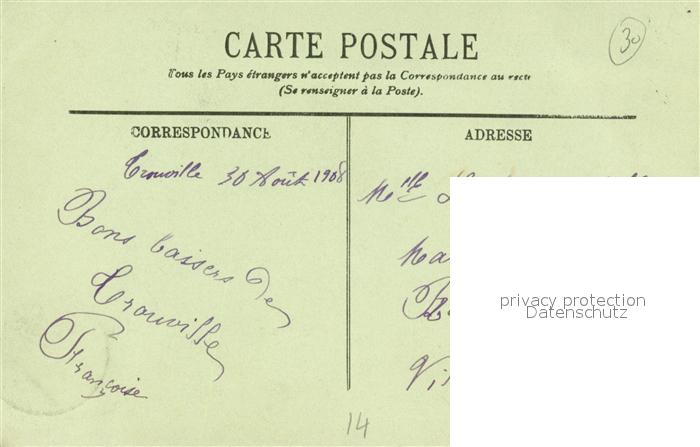 30
CARTE POSTALE
Tous les Pays étrangers n'acceptent pas la Correspondance au recto
(Se renseigner à la Poste).
CORRESPONDANCE
Trouville 30 Août 1908
Bons baisers de
Trouville
Françoise
ADRESSE
Melle
privacy protection
Datenschutz
14